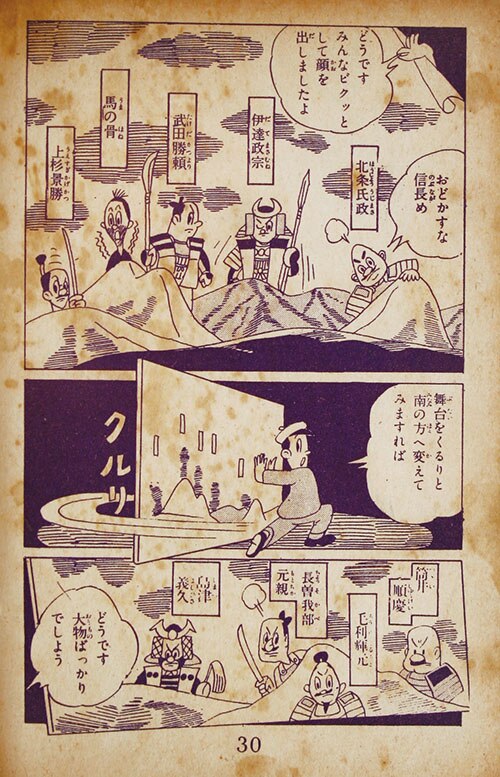 どうです
みんなビクッと
して顔を
出しましたよ
おどかすな
信長め
北条氏政
伊達政宗
武田勝頼
馬の骨
上杉景勝
舞台をくるりと
南の方へ変えて
みますれば
クルリ
筒井
順慶
毛利輝元
長曽我部
元親
島津
義久
どうです
大物ばっかり
でしょう
30